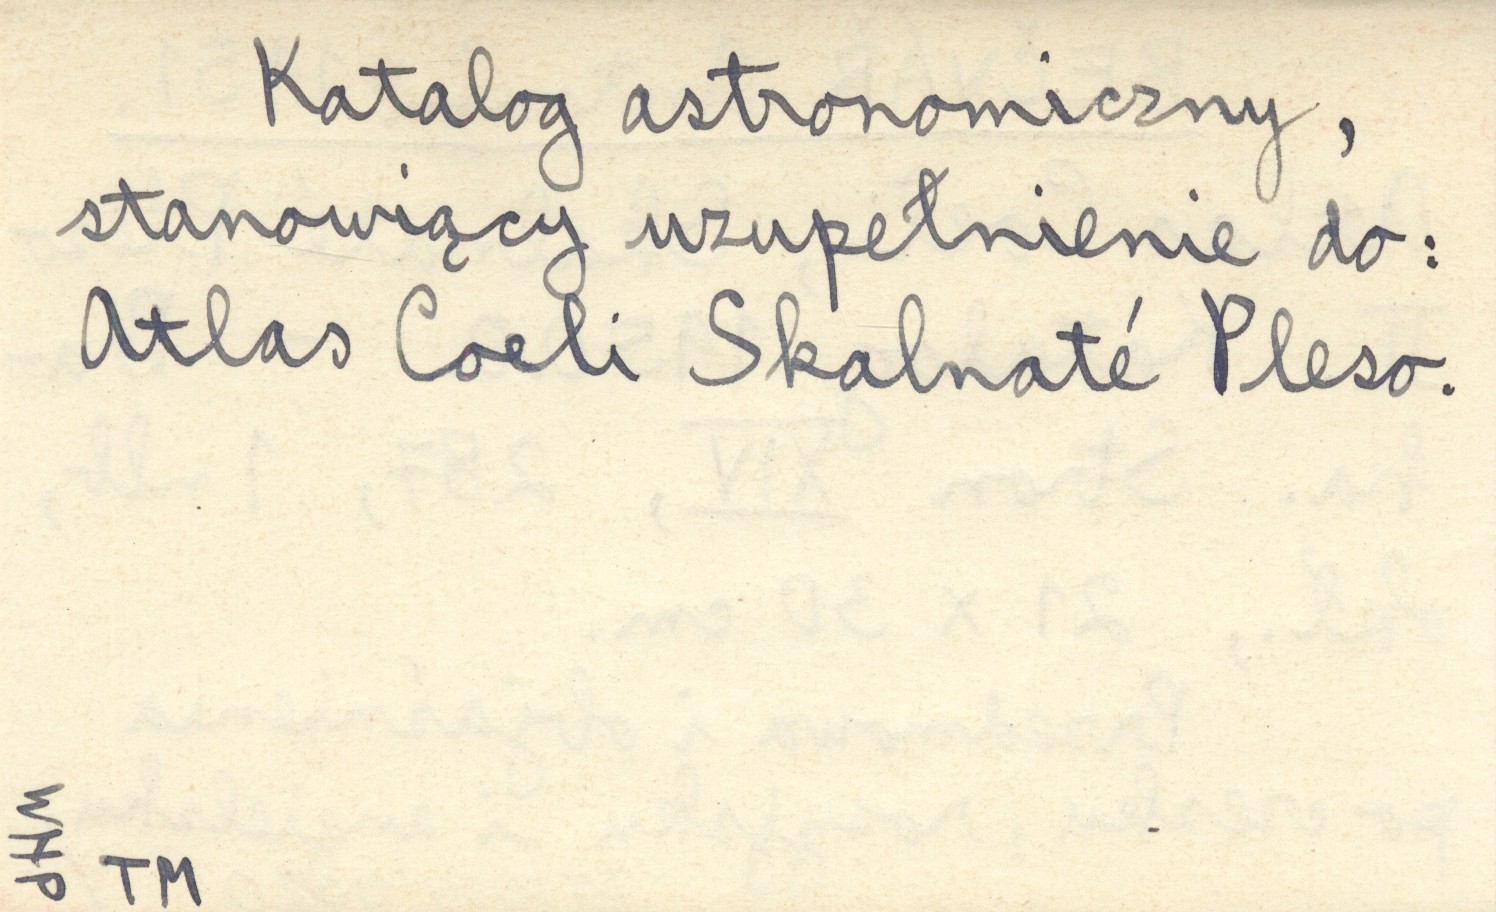 Katalog astronomiczny,
stanowiący uzupełnienie do:
Atlas Coeli Skalnaté Pleso.
WHP
TM